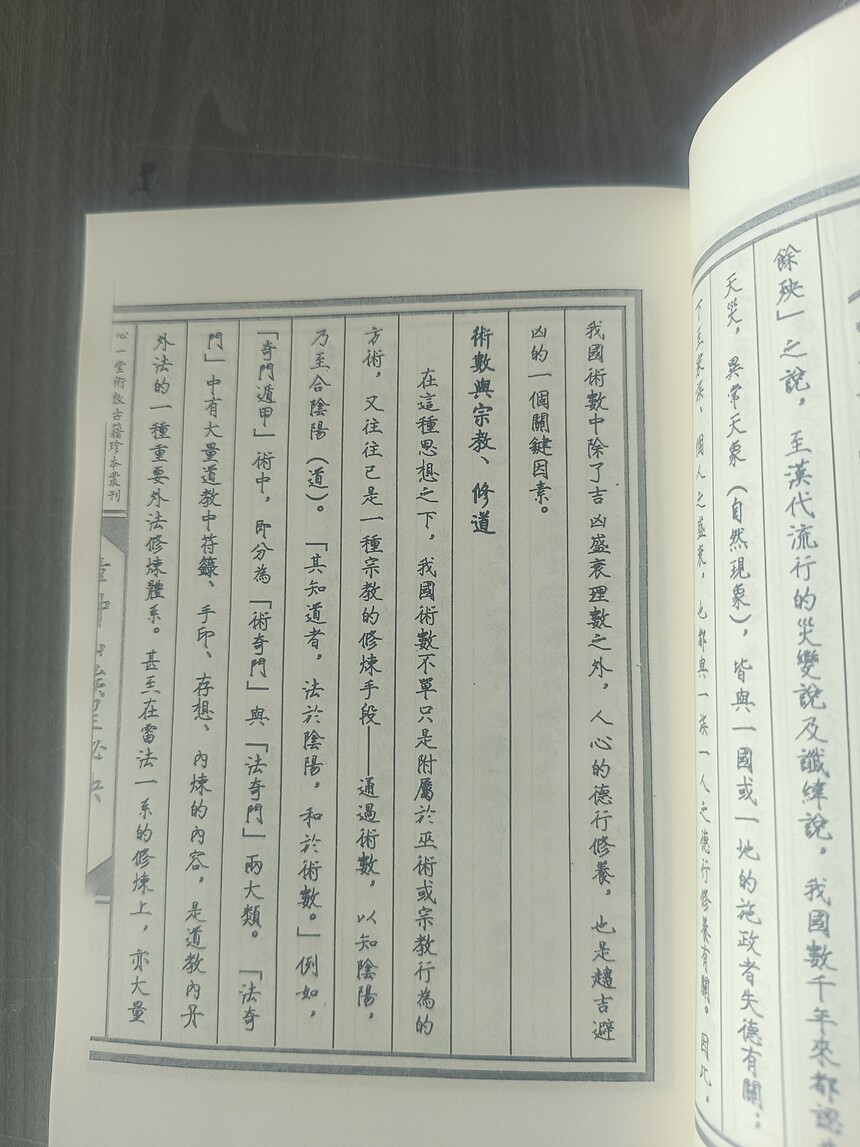 餘殃」之說，至漢代流行的災變說及讖緯說，我國數千年來都認
天災，異常天象（自然現象），皆與一國或一地的施政者失德有關；
下至家族、個人之盛衰，也都與一族一人之德行修養有關。因此，
我國術數中除了吉凶盛衰理數之外，人心的德行修養，也是趨吉避
凶的一個關鍵因素。
術數與宗教、修道
在這種思想之下，我國術數不單只是附屬於巫術或宗教行為的
方術，又往往已是一種宗教的修煉手段——通過術數，以知陰陽，
乃至合陰陽（道）。「其知道者，法於陰陽，和於術數。」例如，
「奇門遁甲」術中，即分為「術奇門」與「法奇門」兩大類。「法奇
門」中有大量道教中符籙、手印、存想、內煉的內容，是道教內丹
外法的一種重要外法修煉體系。甚至在雷法一系的修煉上，亦大量
心一堂術數古籍珍本叢刊